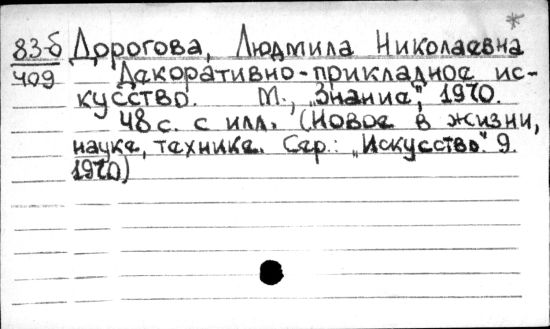 *
83-б Дорогова, Людмила Николаевна
409 Декоративно-прикладное ис-
кусство. М., „Знание", 1970.
48 с. с илл. (Новое в жизни,
науке, технике. Сер.: „Искусство". 9.
1970)